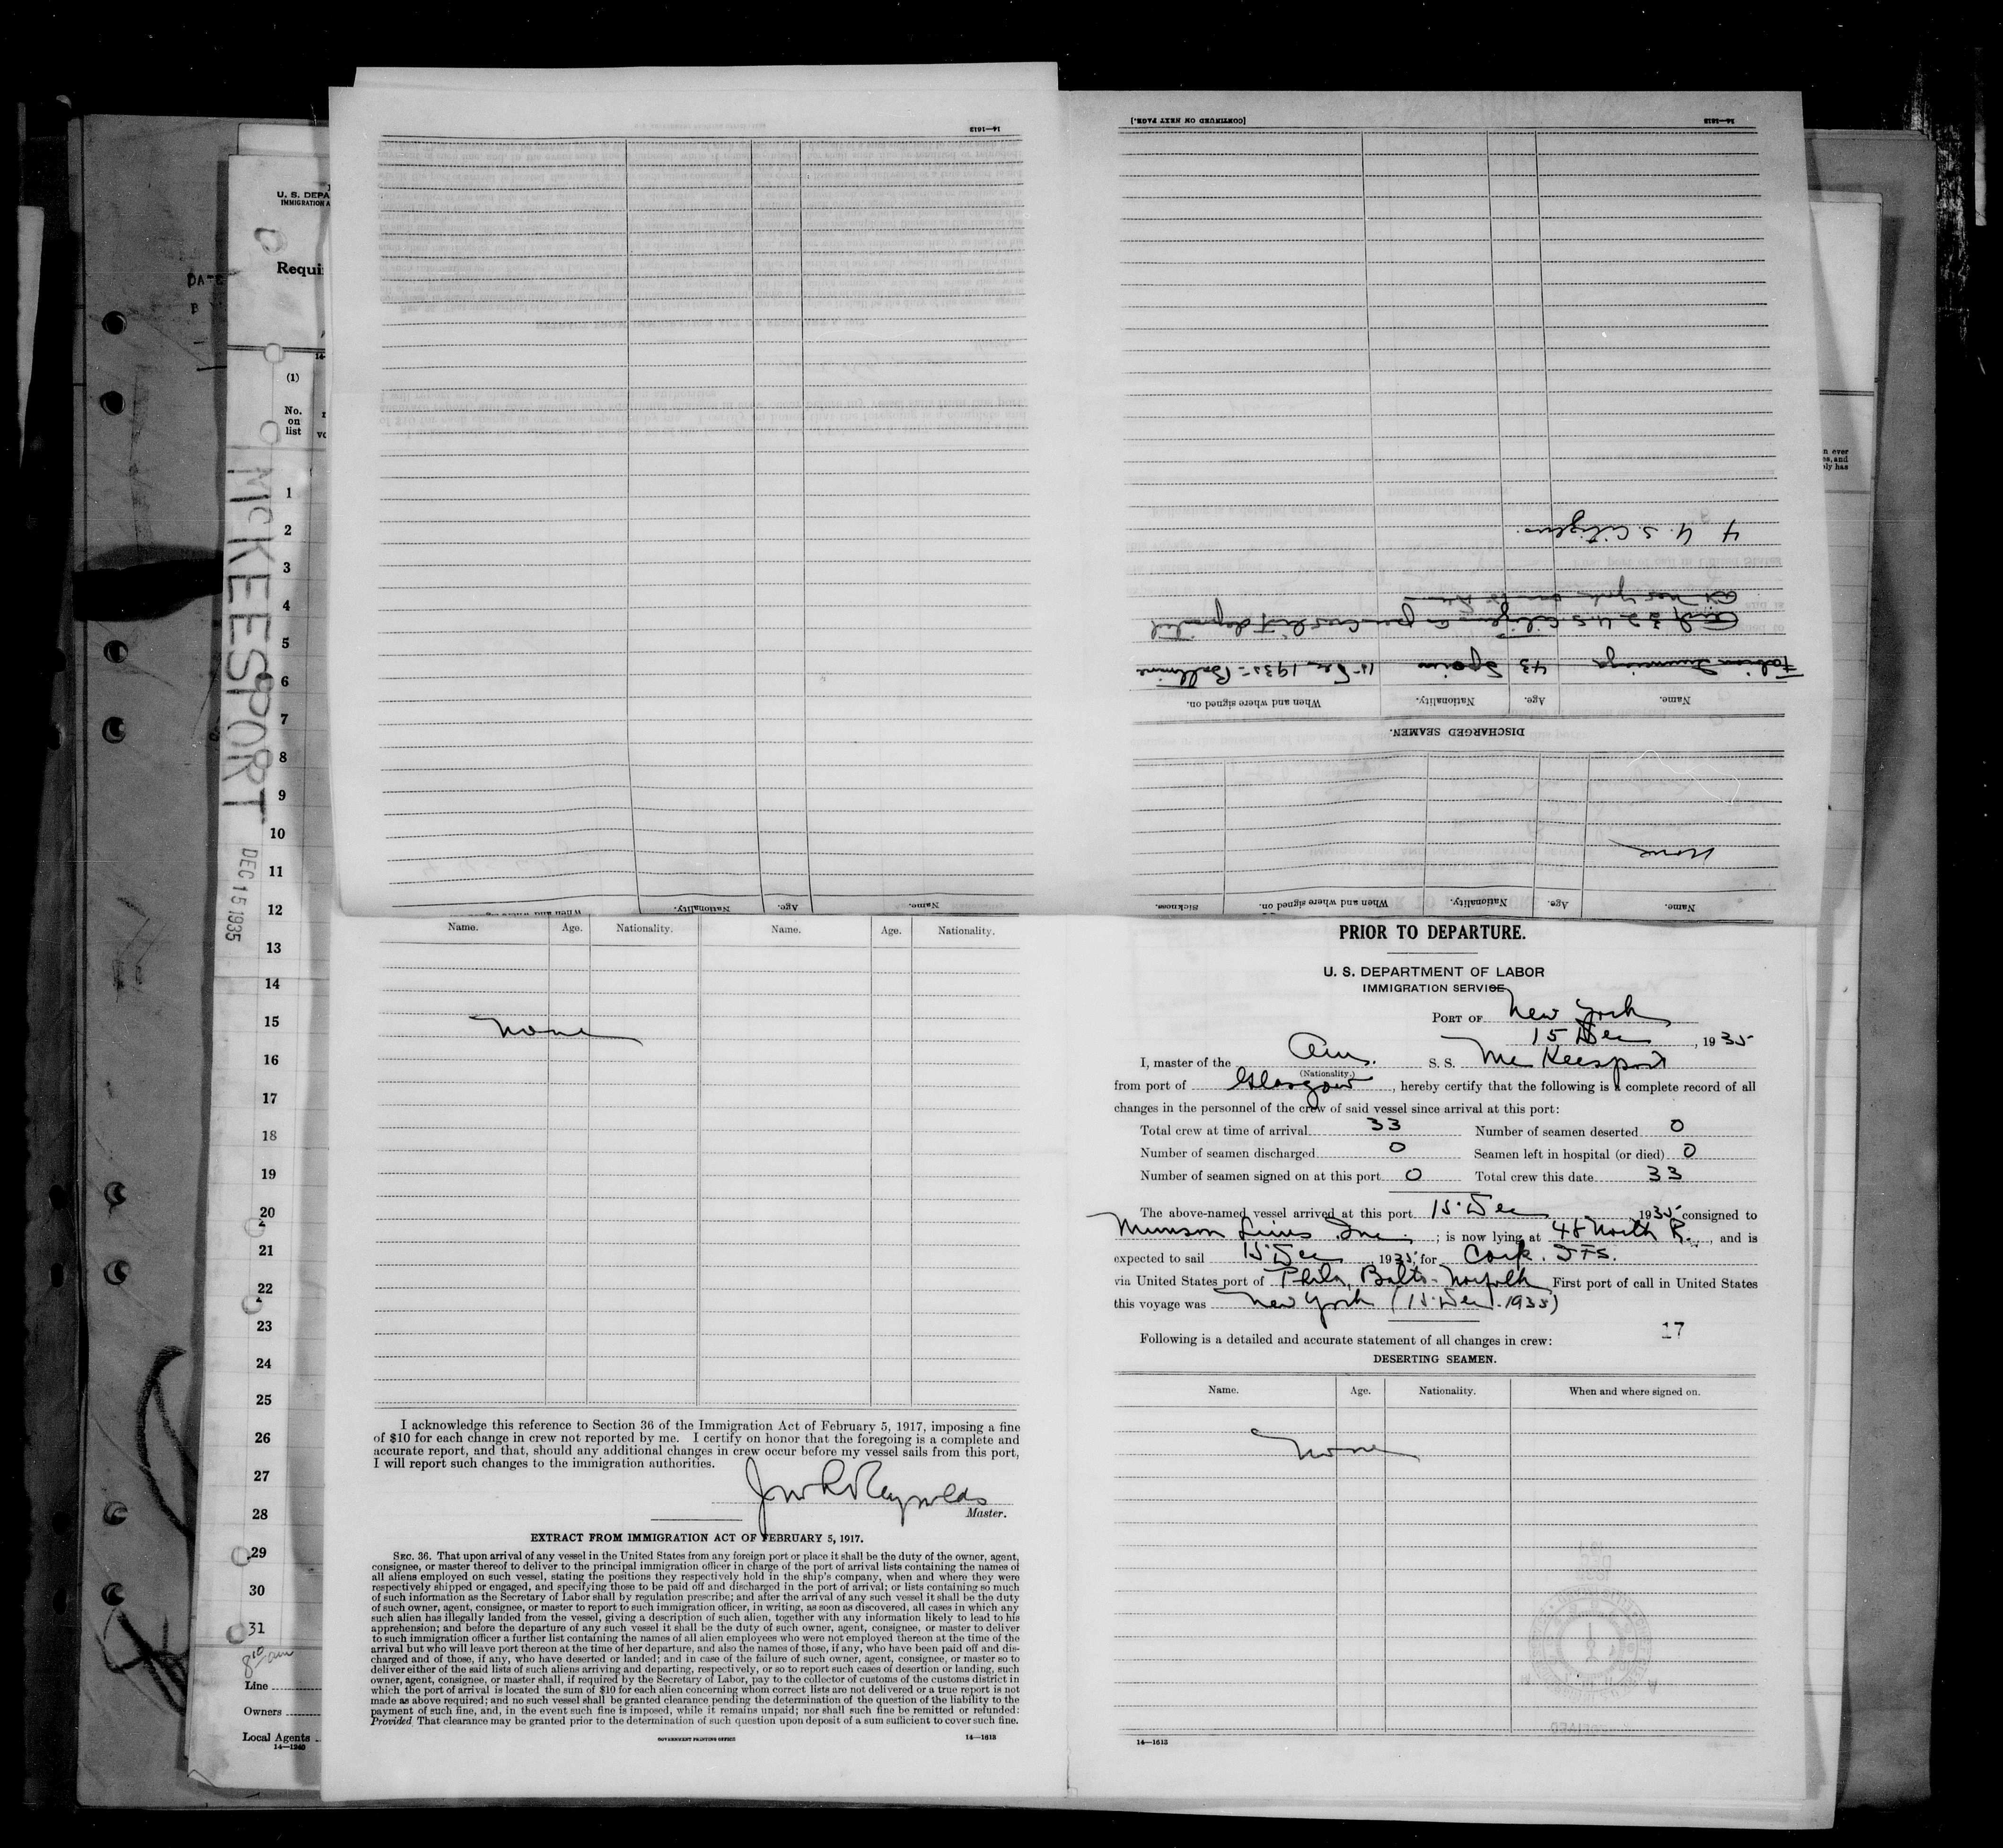 U. S. DEPA
IMMIGRATION A
Requi
DATE
(1)
No.
on
list
McKEESPORT
DEC 15 1935
1
2
3
4
5
6
7
8
9
10
11
12
13
14
15
16
17
18
19
20
21
22
23
24
25
26
27
28
29
30
31
Line
Owners
Local Agents
14—1240
14—1613
Name. Age. Nationality. When and where signed on.
[CONTINUED ON NEXT PAGE.]
14—1613
4 U.S. Citizens.
Fabian 43 Spain 11 Dec 1935 - Baltimore
Name. Age. Nationality. When and where signed on.
DISCHARGED SEAMEN.
None
Name. Age. Nationality. When and where signed on. Sickness.
Name. Age. Nationality. Name. Age. Nationality.
None
I acknowledge this reference to Section 36 of the Immigration Act of February 5, 1917, imposing a fine
of $10 for each change in crew not reported by me. I certify on honor that the foregoing is a complete and
accurate report, and that, should any additional changes in crew occur before my vessel sails from this port,
I will report such changes to the immigration authorities.
Reynolds
Master.
EXTRACT FROM IMMIGRATION ACT OF FEBRUARY 5, 1917.
SEC. 36. That upon arrival of any vessel in the United States from any foreign port or place it shall be the duty of the owner, agent,
consignee, or master thereof to deliver to the principal immigration officer in charge of the port of arrival lists containing the names of
all aliens employed on such vessel, stating the positions they respectively hold in the ship's company, when and where they were
respectively shipped or engaged, and specifying those to be paid off and discharged in the port of arrival; or lists containing so much
of such information as the Secretary of Labor shall by regulation prescribe; and after the arrival of any such vessel it shall be the duty
of such owner, agent, consignee, or master to report to such immigration officer, in writing, as soon as discovered, all cases in which any
such alien has illegally landed from the vessel, giving a description of such alien, together with any information likely to lead to his
apprehension; and before the departure of any such vessel it shall be the duty of such owner, agent, consignee, or master to deliver
to such immigration officer a further list containing the names of all alien employees who were not employed thereon at the time of the
arrival but who will leave port thereon at the time of her departure, and also the names of those, if any, who have been paid off and dis-
charged and of those, if any, who have deserted or landed; and in case of the failure of such owner, agent, consignee, or master so to
deliver either of the said lists of such aliens arriving and departing, respectively, or so to report such cases of desertion or landing, such
owner, agent, consignee, or master shall, if required by the Secretary of Labor, pay to the collector of customs of the customs district in
which the port of arrival is located the sum of $10 for each alien concerning whom correct lists are not delivered or a true report is not
made as above required; and no such vessel shall be granted clearance pending the determination of the question of the liability to the
payment of such fine, and, in the event such fine is imposed, while it remains unpaid; nor shall such fine be remitted or refunded:
Provided That clearance may be granted prior to the determination of such question upon deposit of a sum sufficient to cover such fine.
GOVERNMENT PRINTING OFFICE 14—1613
PRIOR TO DEPARTURE.
U. S. DEPARTMENT OF LABOR
IMMIGRATION SERVICE
PORT OF New York
15 Dec, 1935
I, master of the Am. S. S. McKeesport
(Nationality.)
from port of Glasgow, hereby certify that the following is a complete record of all
changes in the personnel of the crew of said vessel since arrival at this port:
Total crew at time of arrival 33 Number of seamen deserted 0
Number of seamen discharged 0 Seamen left in hospital (or died) 0
Number of seamen signed on at this port 0 Total crew this date 33
The above-named vessel arrived at this port 15 Dec 1935 consigned to
Munson Lines Inc.; is now lying at 48 North R., and is
expected to sail 15 Dec 1935 for Cork. I.F.S.
via United States port of Phila, Balto - Norfolk First port of call in United States
this voyage was New York (15 Dec. 1935)
17
Following is a detailed and accurate statement of all changes in crew:
DESERTING SEAMEN.
Name. Age. Nationality. When and where signed on.
None
14—1613